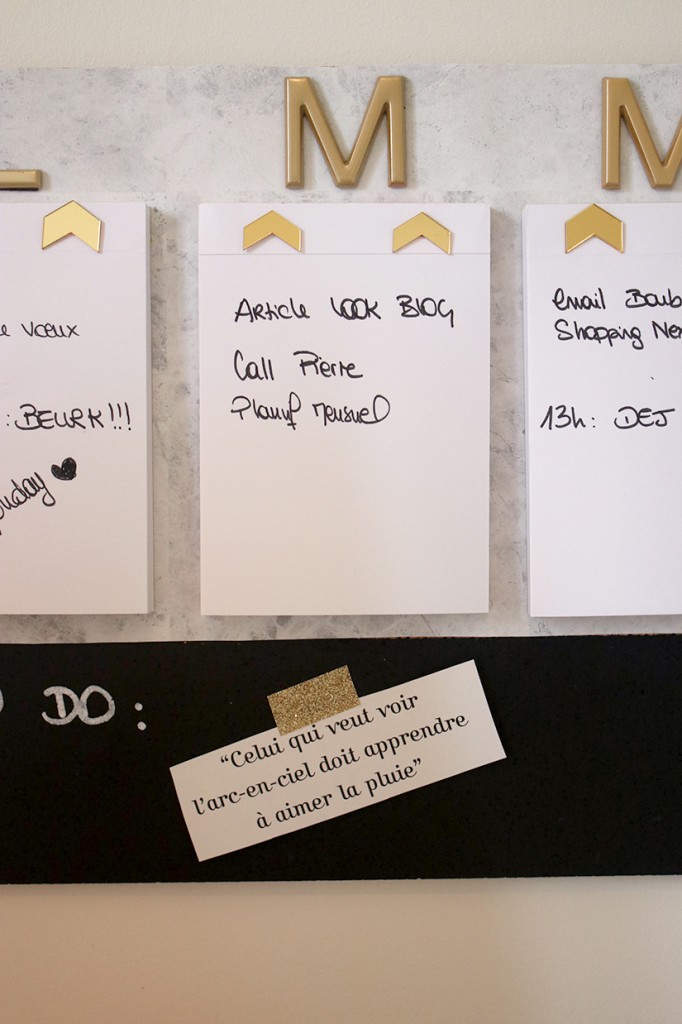 L M M
Vœux
: BEURK!!!
Article LOOK BLOG
Call Pierre
Planif Mensuel
email
Shopping
13h: DEJ
DO :
“Celui qui veut voir
l’arc-en-ciel doit apprendre
à aimer la pluie”